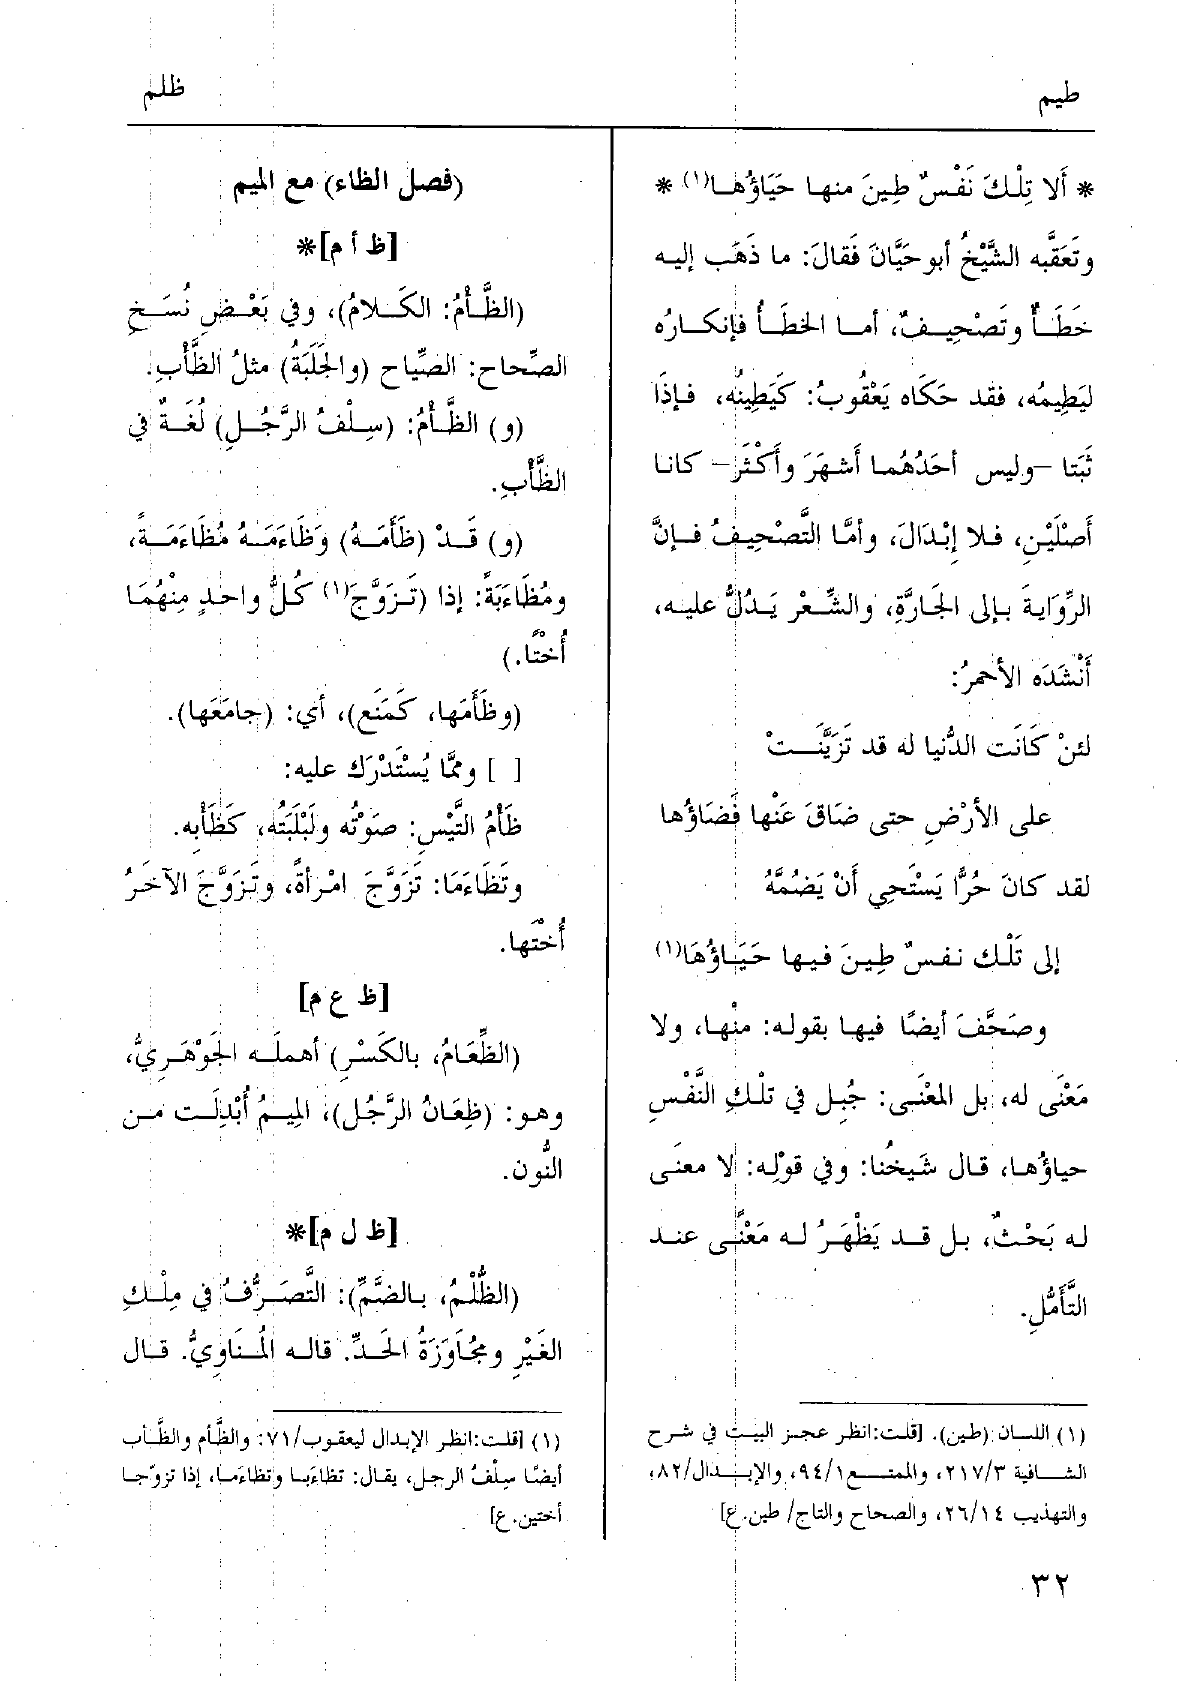 طيم
ظلم
* أَلا تِلْكَ نَفْسٌ طِينَ منها حَيَاؤُهـا(١) *
وتَعَقَّبه الشَّيْخُ أبو حَيَّانَ فَقالَ: ما ذَهَب إليـه
خطَـأٌ وتَصْحِيـفٌ، أمـا الخطَـأُ فإنكـارُه
ليَطِيمُه، فقد حَكَاه يَعْقُوبُ: كَيَطِينُه، فـإذَا
ثَبَتا -وليس أحَدُهُما أَشهَرَ وأَكْثَرَ- كانـا
أَصْلَيْـنِ، فـلا إبْـدَالَ، وأمَّـا التَّصْحِيـفُ فـإنَّ
الرِّوَايـةَ بـإلى الجَـارَّةِ، والشِّـعْر يَـدُلُّ عليـه،
أَنْشَدَه الأحمرُ:
لئنْ كَانَت الدُّنيا له قد تَزَيَّنَـتْ
على الأرْضِ حتى ضَاقَ عَنْها فَضَاؤُها
لقد كانَ حُرًّا يَسْتَحِي أَنْ يَضُمَّهُ
إلى تَلْـك نـفـسٌ طِيـنَ فيـهـا حَيَـاؤُهَـا(١)
وصَحَّفَ أيضًا فيها بقوله: منْها، ولا
مَعْنَى له، بل المعْنَـى: جُبِل في تلْـكِ النَّفْسِ
حياؤُهـا، قـال شَيخُنا: وفي قوْلِه: لا معنَى
لـه بَحْثٌ، بـل قـد يَظْهَـرُ لـه مَعْنًـى عنـد
التَّأَمُّلِ.
(١) اللسان (طين). [قلت:انظر عجز البيت في شرح
الشـافية ٢١٧/٣، والممتـع٩٤/١، والإبـدال/٨٢،
والتهذيب ٢٦/١٤، والصحاح والتاج/ طين.ع]
(فصل الظاء) مع الميم
[ظ أ م]*
(الظَّـأْمُ: الكَـلامُ)، وفي بَعْـضِ نُسَـخِ
الصِّحاح: الصِّيَاح (والجَلَبَةُ) مثلُ الظَّأْبِ.
(و) الظَّـأْمُ: (سِـلْفُ الرَّجُـلِ) لُغَـةٌ في
الظَّأْبِ.
(و) قَـدْ (ظَأَمَـهُ) وَظَاءَمَـهُ مُظَاءَمَـةً،
ومُظَاءَبَةً: إذا (تَـزَوَّجَ(١) كُلُّ واحـدٍ مِنْهُمَا
أُخْتًا.)
(وظَأَمَها، كَمَنَع)، أي: (جامَعَها).
[ ] وممَّا يُسْتَدْرَك عليه:
ظَأْمُ التَّيْسِ: صَوْتُه ولَبْلَبَتُه، كَظَأْبِه.
وتَظَاءَمَا: تَزَوَّجَ امْرأةً، وتَزَوَّجَ الآخَرُ
أُخْتَها.
[ظ ع م]
(الظِّعَـامُ، بالكَسْـرِ) أهملَـه الجَوْهَـرِيُّ،
وهـو: (ظِعَانُ الرَّجُل)، المِيمُ أُبْدِلَـت مـن
النُّون.
[ظ ل م]*
(الظُّلْـمُ، بـالضَّمِّ): التَّصَـرُّفُ في مِلْـكِ
الغَيْرِ ومُجَاوَزَةُ الحَـدِّ. قاله المُنَاوِيُّ. قـال
(١) [قلت:انظر الإبدال ليعقوب/٧١: والظَّأم والظَّأب
أيضًا سِلْفُ الرجل، يقال: تظاءَبـا وتظاءَمـا، إذا تزوّجـا
أختين.ع]
٣٢